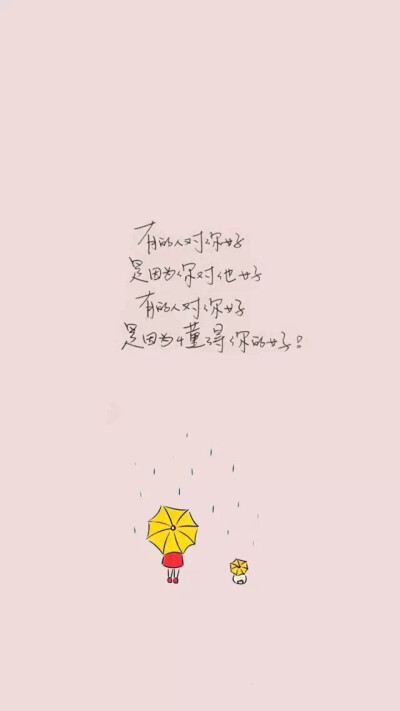 有的人对你好
是因为你对他好
有的人对你好
是因为懂得你的好！